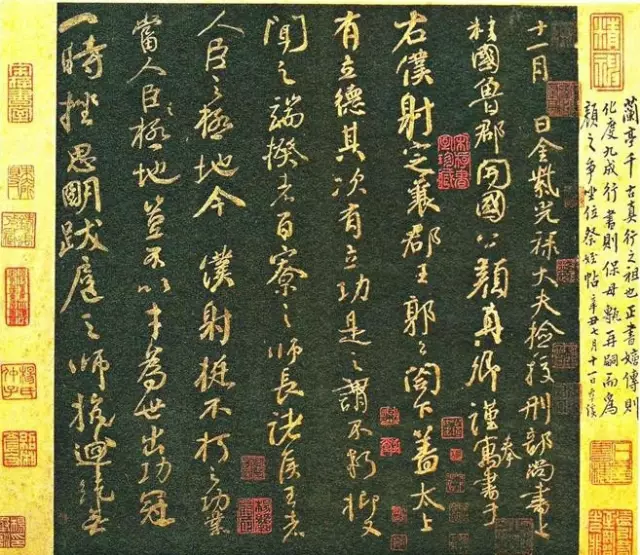 蘭亭千古真行之祖也正書嫡傳則
化度九成行書則保母甎再嗣而為
顏之爭坐位祭姪帖 辛丑七月十一日
十一月 日金紫光祿大夫檢校刑部尚書上
柱國魯郡開國公顏真卿謹奉寓書于
右僕射定襄郡王郭公閣下蓋太上
有立德其次有立功是之謂不朽抑又
聞之端揆者百寮之師長諸侯王者
人臣之極地今 僕射挺不朽之功業
當人臣之極地豈不以才為世出功冠
一時挫思明跋扈之師抗迴紇無